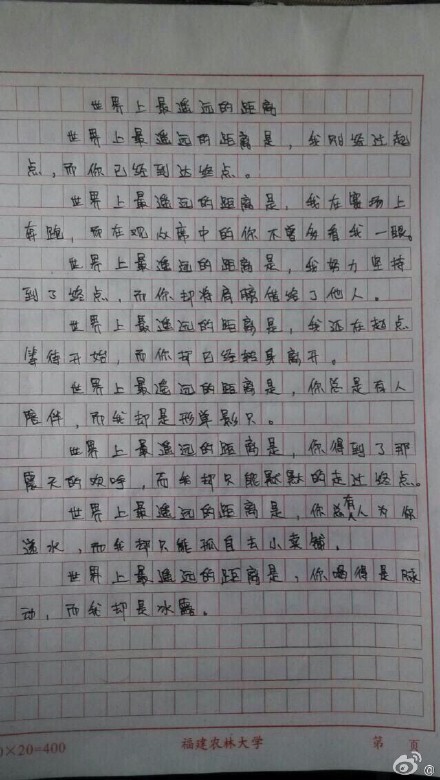 世界上最遥远的距离
世界上最遥远的距离是，我刚经过起
点，而你已经到达终点。
世界上最遥远的距离是，我在赛场上
奔跑，而在观众席中的你不曾多看我一眼。
世界上最遥远的距离是，我努力坚持
到了终点，而你却将肩膀借给了他人。
世界上最遥远的距离是，我还在起点
等待开始，而你却已经转身离开。
世界上最遥远的距离是，你总是有人
陪伴，而我却是形单影只。
世界上最遥远的距离是，你得到了那
震天的欢呼，而我却只能默默的走过终点。
世界上最遥远的距离是，你总有人为你
递水，而我却只能孤自去小卖铺。
世界上最遥远的距离是，你喝得是脉
动，而我却是冰露。
0×20=400 福建农林大学 第 页